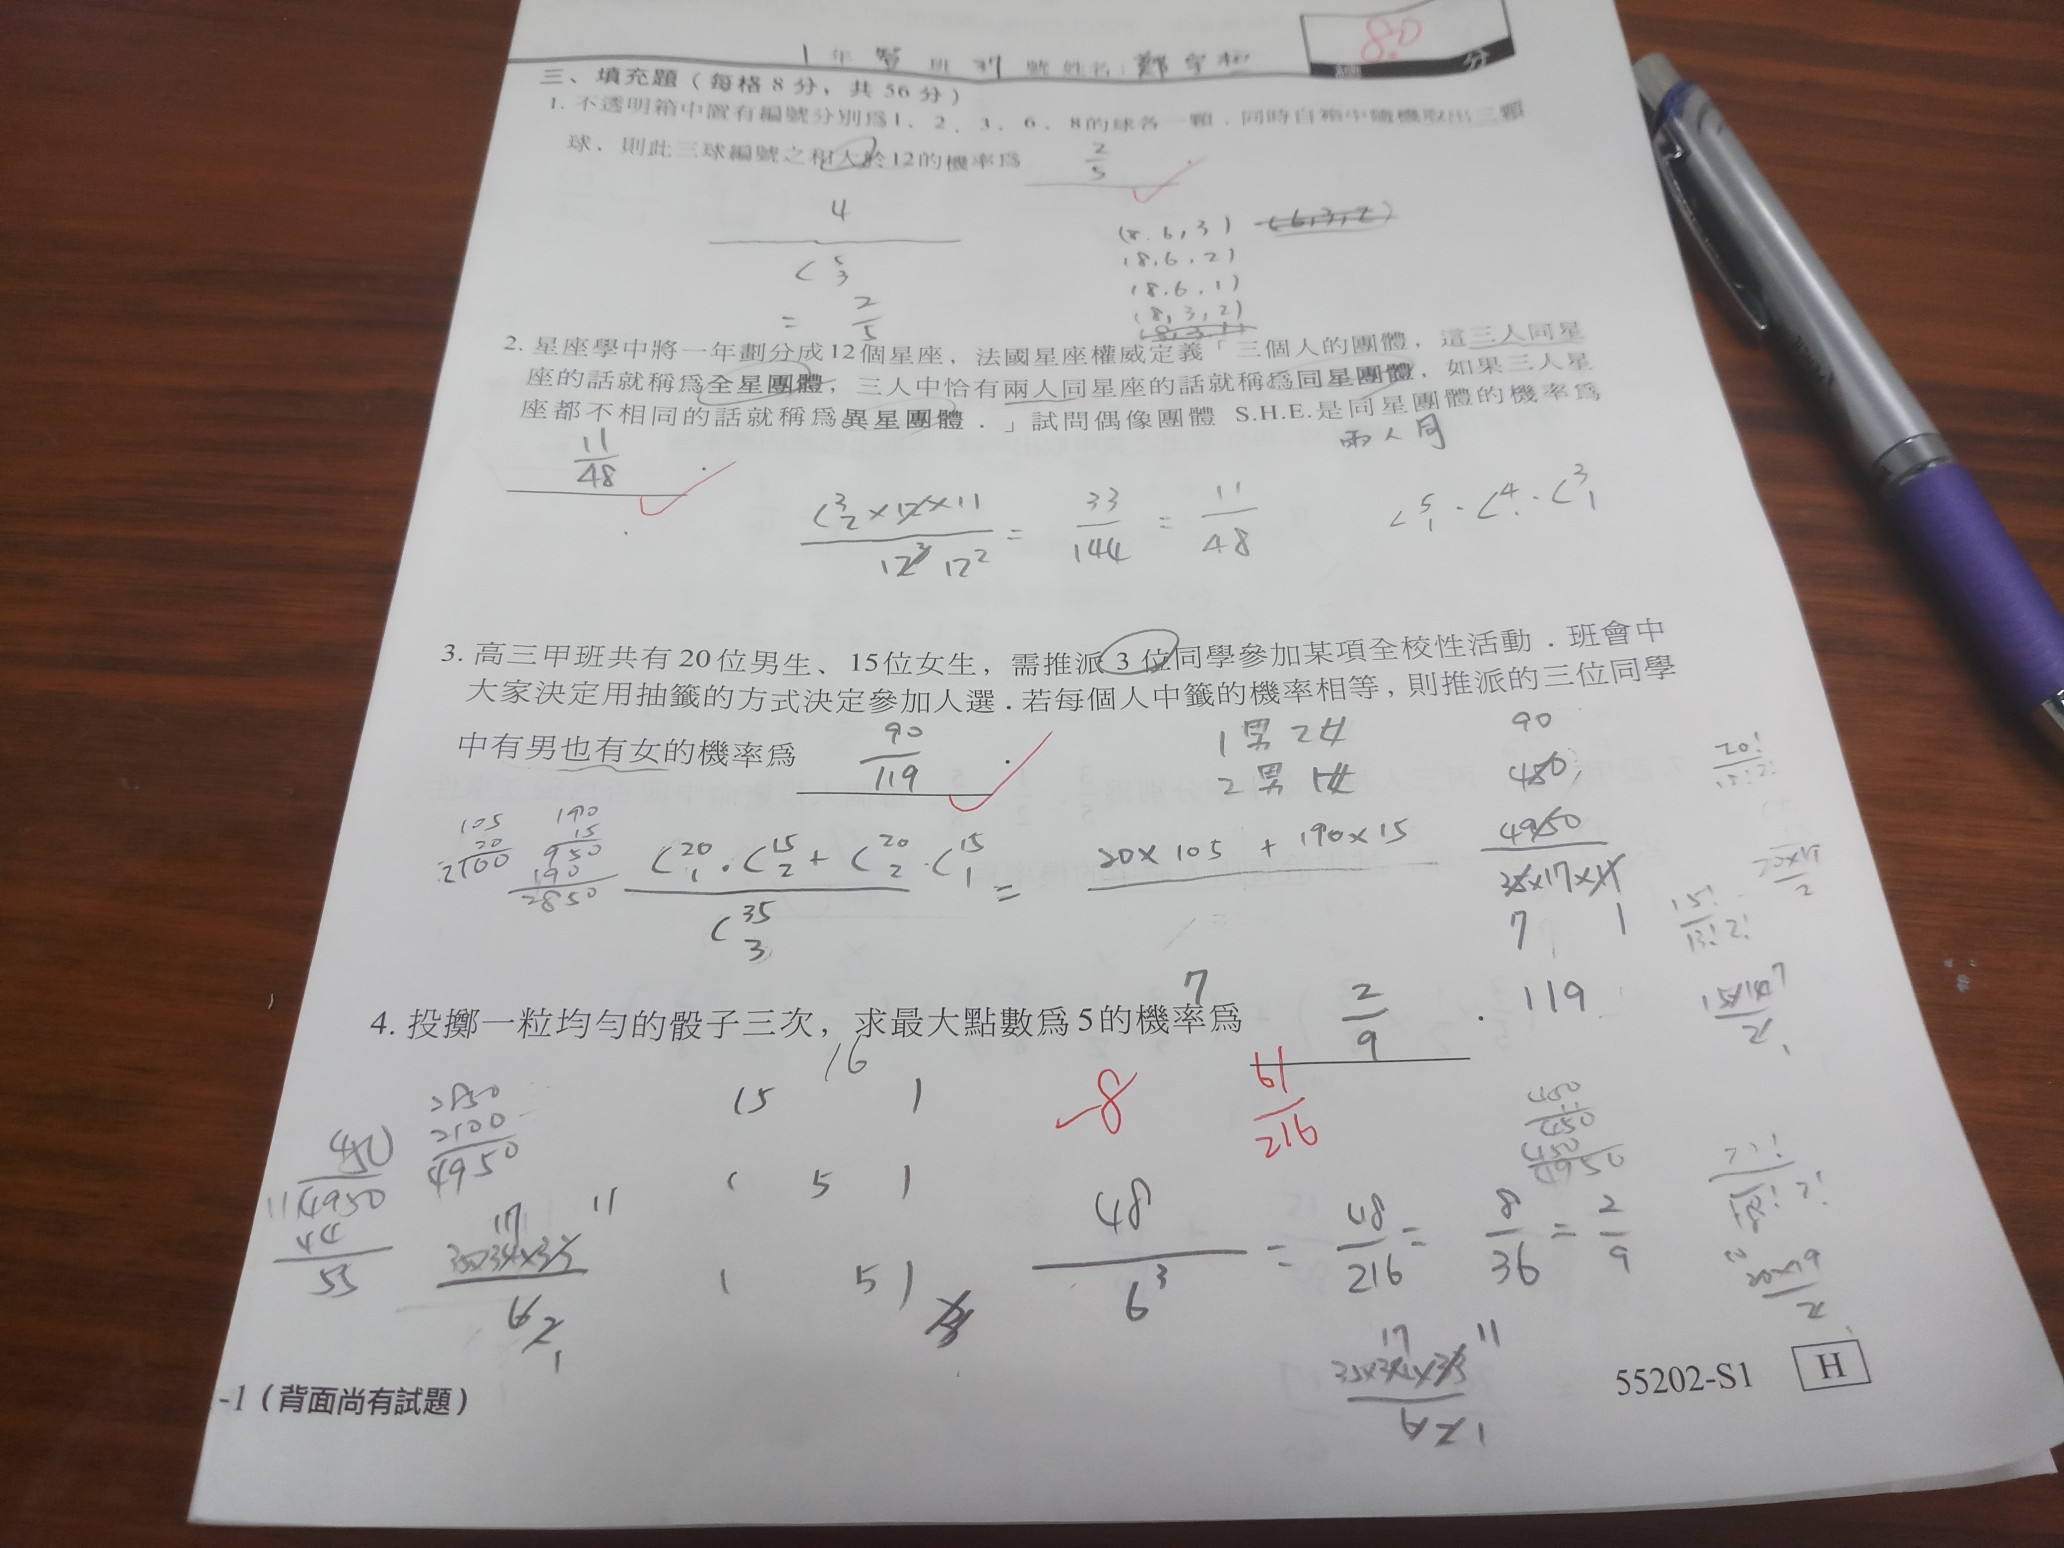 80
分
1年 班 37 號 姓名:鄭
三、填充題（每格8分，共56分）
1. 不透明箱中置有編號分別為1、2、3、6、8的球各一顆．同時自箱中隨機取出三顆
球、則此三球編號之和大於12的機率為 2/5
4
C 5 3
= 2/5
(8.6,3) (6,3,2)
(8,6,2)
(8.6,1)
(8,3,2)
(8,3,1)
2. 星座學中將一年劃分成12個星座，法國星座權威定義「三個人的團體，這三人同星
座的話就稱為全星團體，三人中恰有兩人同星座的話就稱為同星團體，如果三人星
座都不相同的話就稱為異星團體．」試問偶像團體 S.H.E.是同星團體的機率為
11/48 .
兩人同
C 3 2 ×12×11 / 12³ 12² = 33/144 = 11/48
C 5 1 · C 4 1 · C 3 1
3. 高三甲班共有20位男生、15位女生，需推派3位同學參加某項全校性活動．班會中
大家決定用抽籤的方式決定參加人選．若每個人中籤的機率相等，則推派的三位同學
中有男也有女的機率為 90/119 .
1男2女
2男1女
90
450
4950
35×17×11
7 1
119
105
20
2100
190
15
950
190
2850
C 20 1 · C 15 2 + C 20 2 · C 15 1 / C 35 3 = 20×105 + 190×15
15!
13!2!
7
4. 投擲一粒均勻的骰子三次，求最大點數為5的機率為 2/9 .
16
-8 61/216
15 1
5 1
1 5 1
2850
2100
4950
450
11 4950
44
55
17 11
35×34×33
6 2
1
48/6³ = 48/216 = 8/36 = 2/9
17 11
35×34×33
-1（背面尚有試題）
55202-S1 H